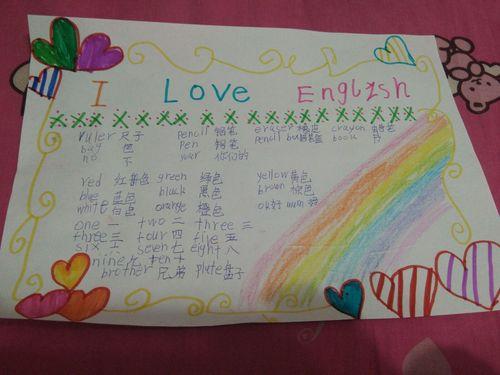 I Love English
ruler 尺子 pencil 铅笔 eraser 橡皮 crayon 蜡笔
bag 包 Pen 钢笔 pencil box 铅笔盒 book 书
no 不 your 你们的
red 红色 green 绿色 yellow 黄色
blue 蓝色 black 黑色 brown 棕色
white 白色 orange 橙色 ok 好
one 一 two 二 three 三
three 三 four 四 five 五
six 六 seven 七 eight 八
nine 九 ten 十
brother 兄弟 plate 盘子